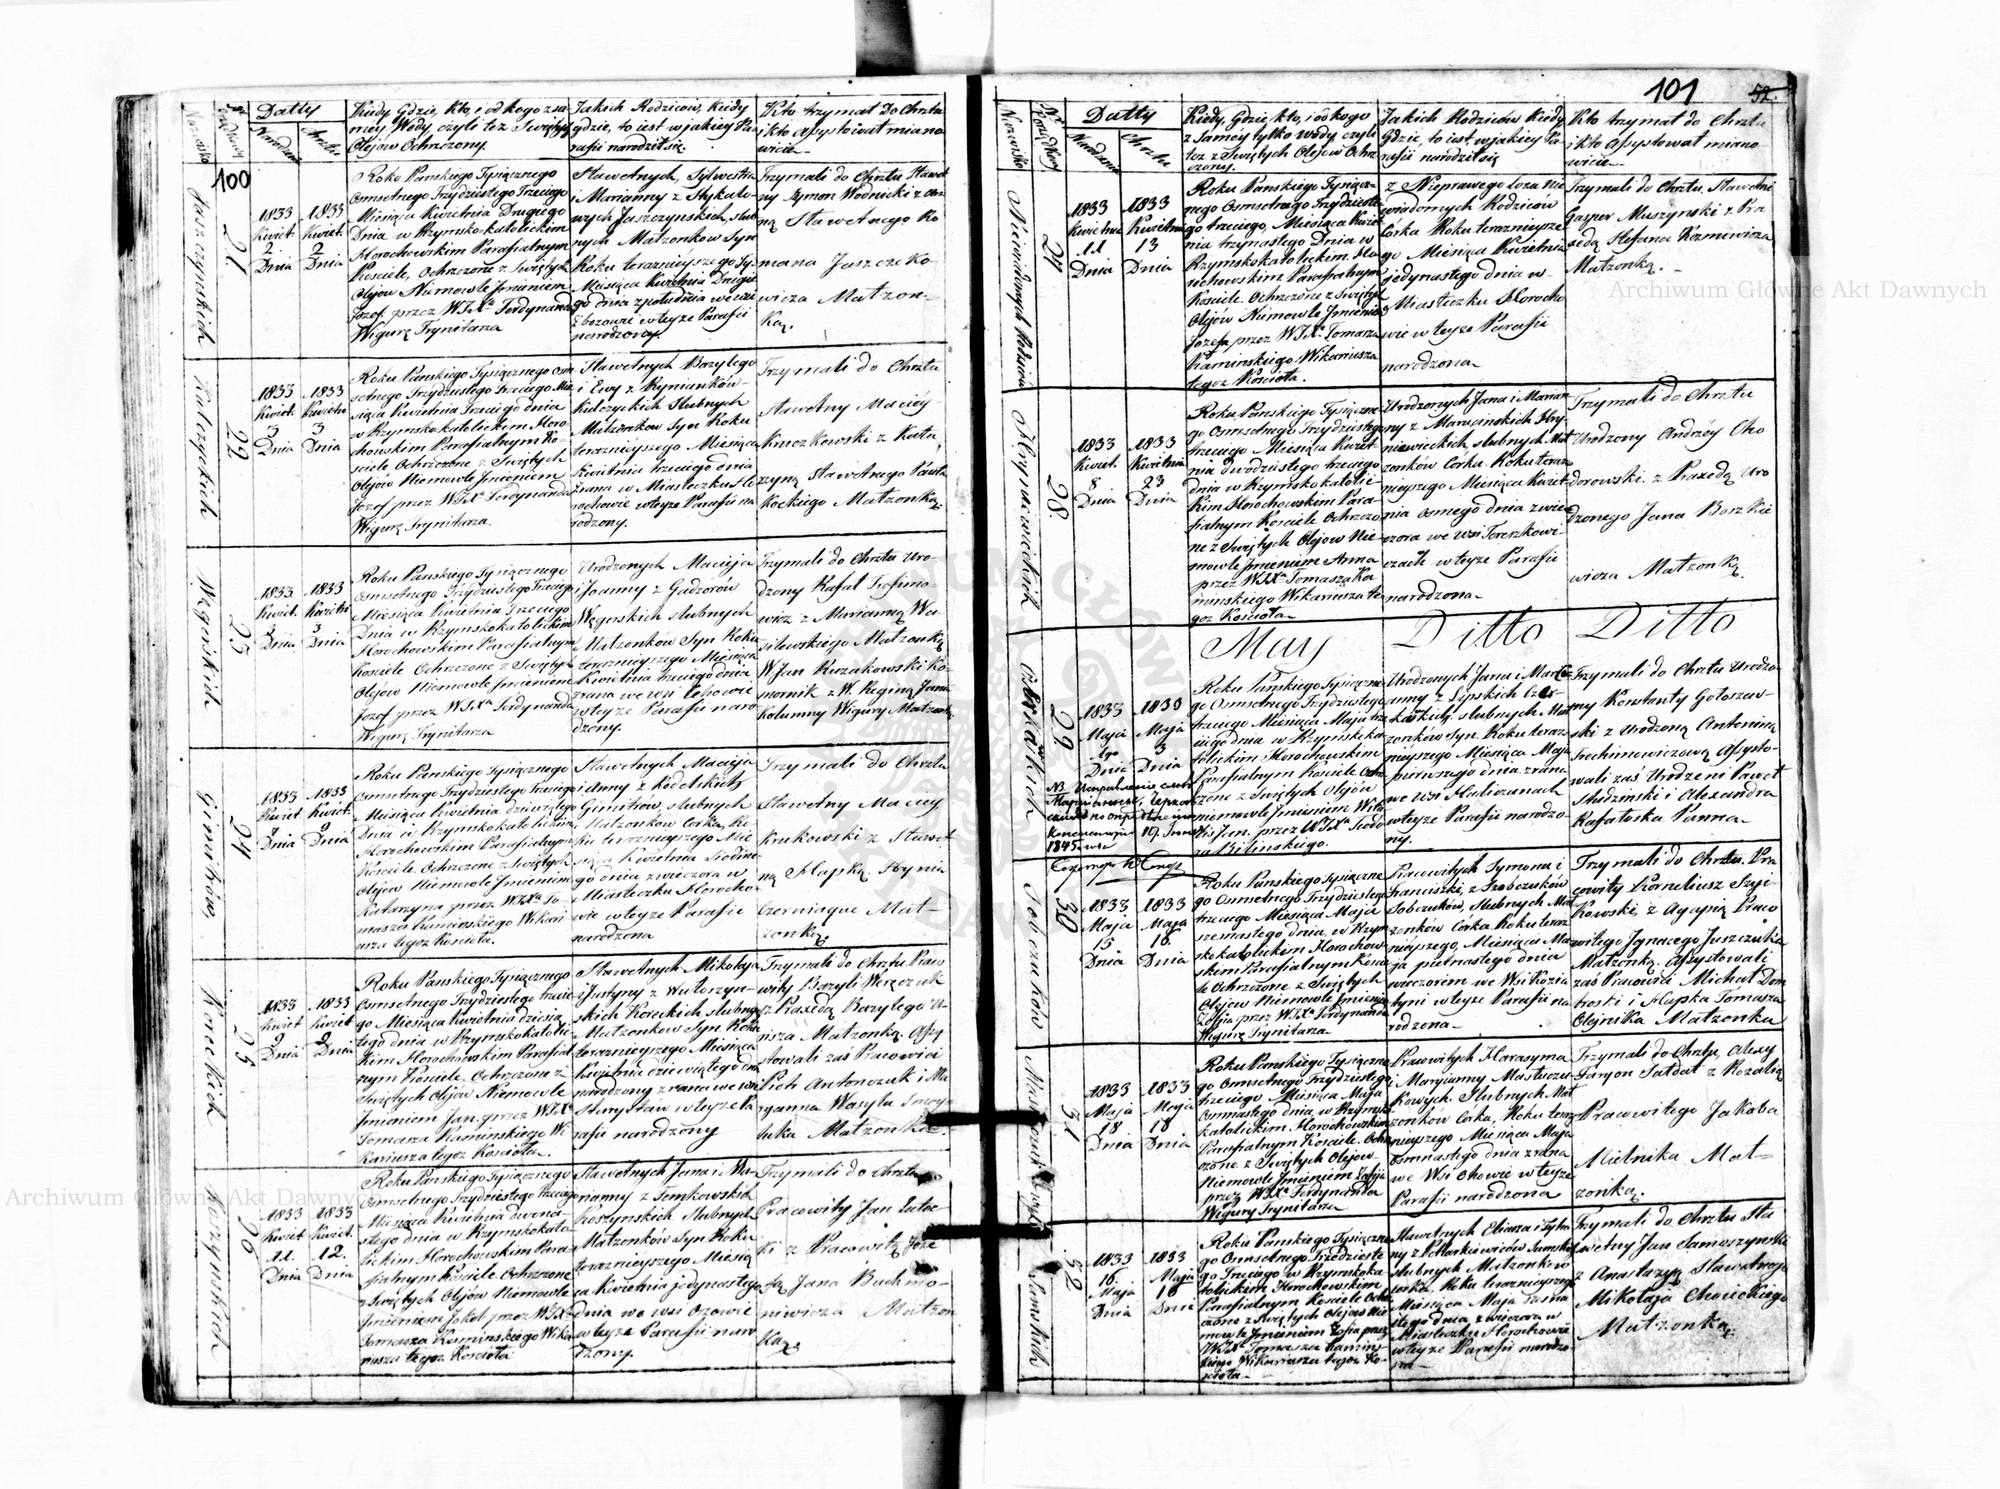 100
Nazwisko
Nr Porządkowy
Datty
Narodzin
Chrztu
Kiedy, Gdzie, Kto, i od kogo z sa-
mey Wody, czyli też z Świętych
Olejow Ochrzczony.
Jakich Rodziców, kiedy
gdzie, to iest w jakiey Pa-
rafii narodził się
Kto trzymał do Chrztu
i kto assystował miano-
wicie
Jaszczyńskich
21
1833
Kwiet.
2
Dnia
1833
Kwiet.
2
Dnia
Roku Panskiego Tysiącznego
Osmsetnego Trzydziestego Trzeciego
Miesiąca Kwietnia Drugiego
Dnia w Rzymsko-katolickim
Horochowskim Parafialnym
Kosciele, Ochrzczone z Swiętych
Olejow Niemowle Jmieniem
Jozef przez WJXa Ferdynanda
Wigurę Trynitarza
Sławetnych, Sylwestra
i Marianny z Stykało-
wych Jaszczynskich, slub-
nych Małżonkow Syn
Roku terazniejszego
Miesiąca Kwietnia Drugie-
go dnia z południa we wsi
w teyze Parafii
narodzony.
Trzymali do Chrztu Sławet-
ny Szymon Wodnicki z An-
ną Sławetnego Ro
mana Jaszczeko-
wicza Małżon-
ką.
Kulczyckich
22
1833
Kwiet.
3
Dnia
1833
Kwietni
3
Dnia
Roku Panskiego Tysiącznego Osm
setnego Trzydziestego Trzeciego Mie-
siąca Kwietnia Trzeciego dnia
w Rzymsko katolickim Horo-
chowskim Parafialnym Ko-
sciele Ochrzczone z Swiętych
Olejow Niemowle Jmieniem
Jozef przez WJXa Ferdynanda
Wigurę Trynitarza.
Sławetnych Bazylego
i Ewy z Rymianków-
Kulczyckich slubnych
Małżonkow Syn Roku
terazniejszego Miesiąca
Kwietnia trzeciego dnia
zrana w Miasteczku Ho
rochowie w teyze Parafii na
rodzony.
Trzymali do Chrztu
Sławetny Maciey
Kruczkowski z Kata
rzyną Sławetnego Pawła
Kockiego Małżonką
Węgerskich
23
1833
Kwiet.
3
Dnia
1833
Kwietni
3
Dnia
Roku Panskiego Tysiącznego
Osmsetnego Trzydziestego Trzeciego
Miesiąca Kwietnia Trzeciego
Dnia w Rzymskokatolickim
Horochowskim Parafialnym
Kosciele Ochrzczone z Swiętych
Olejow Niemowle Jmieniem
Jozef przez WJXa Ferdynanda
Wigurę Trynitarza
Urodzonych Macieja
i Joanny z Gudzorów
Węgerskich slubnych
Małżonków Syn Roku
terazniejszego Miesiąca
Kwietnia trzeciego dnia
zrana we wsi
w teyze Parafii naro
dzony.
Trzymali do Chrztu Uro-
dzony Rafał Trofimo-
wicz z Marianną Wa
silewskiego Małżonką
W. Jan Ruzakowski Ko-
mornik z W. Reginą Jana
Kolumny Wigury Małżonką
Gimitrów
24
1833
Kwiet.
9
Dnia
1833
Kwiet.
9
Dnia
Roku Panskiego Tysiącznego
Osmsetnego Trzydziestego Trzeciego
Miesiąca Kwietnia dziewiątego
Dnia w Rzymskokatolickim
Horochowskim Parafialnym
Kosciele Ochrzczone z Swiętych
Olejow Niemowle Jmieniem
Katarzyna przez WJXa To-
masza Kaminskiego Wikari
usza tegoz Kosciola.
Sławetnych Macieja
i Anny z Kodelskich
Gimitrów, slubnych
Małżonkow Corka, Ro-
ku terazniejszego Mie
siąca Kwietnia Siodme
go dnia z wieczora w
Miasteczku Horocho-
wie w teyze Parafii
narodzona
Trzymali do Chrztu
Sławetny Maciey
Krukowski z Sławet
ną Hapką Hrynia
Czerniague Mał-
zonką.
Koreckich
25
1833
Kwiet
9
Dnia
1833
Kwiet
9
Dnia
Roku Panskiego Tysiącznego
Osmsetnego Trzydziestego trzecie-
go Miesiąca Kwietnia dziewią
tego dnia w Rzymskokatolic-
kim Horochowskim Parafial
nym Kosciele Ochrzczone z
Swiętych Olejow Niemowle
Jmieniem Jan. przez WJXa
Tomasza Kaminskiego Wi
kariusza tegoz Kosciola.
Sławetnych Mikołaja
i Justyny z Wutoszyn-
skich Koreckich slubnych
Małżonkow Syn Roku
terazniejszego Miesiąca
Kwietnia dziewiątego dnia
narodzony z rana we wsi
Starystaw w teyze Pa
rafii narodzony
Trzymali do Chrztu Praco
wity Bazyli Weręczuk
z Praxedą Bazylego
Małżonką. Assy
stowali zaś Pracowici
Piotr Antonczuk i Ma
ryanna Wasyla
Małżonka.
Koszynskich
26
1833
Kwiet
11.
Dnia
1833
Kwiet.
12.
Dnia
Roku Panskiego Tysiącznego
Osmsetnego Trzydziestego trzeciego
Miesiąca Kwietnia dwuna-
stego dnia w Rzymskokato-
lickim Horochowskim Para-
fialnym Kosciele Ochrzczone
z Swiętych Olejow Niemowle
Jmieniem Jakob przez WJXa
Tomasza Kaminskiego Wika
riusza tegoz Kosciola
Sławetnych Jana i Ma-
rianny z Semkowskich
Koszynskich Slubnych
Małżonkow Syn Roku
terazniejszego Miesią
ca Kwietnia jedynastego
dnia we wsi Ozowie
w teyze Parafii naro
dzony.
Trzymali do Chrztu
Pracowity Jan
ki z Pracowitą Joze
fą Jana Buchmo-
niewicza Małzon
ką.
101
52.
Nazwisko
Nr Porządkowy
Datty
Narodzenia
Chrztu
Kiedy, Gdzie, kto, i od kogo
z samey tylko wody, czyli
też z Swiętych Olejow Ochrz
czony.
Jakich Rodziców kiedy
Gdzie, to iest w jakiey Pa-
rafii narodził się
Kto trzymał do Chrztu
i kto assystował miano
wicie
Niewiadomych Rodzicow
27
1833
Kwietnia
11
Dnia
1833
Kwietnia
13
Dnia
Roku Panskiego Tysiącz-
nego Osmsetnego Trzydzieste-
go trzeciego, Miesiąca Kwiet
nia trzynastego Dnia w
Rzymskokatolickim Ho
rochowskim Parafialnym
Kosciele. Ochrzczone z Swiętych
Olejow Niemowle Jmieniem
Jozefa przez WJXa Tomasza
Kaminskiego Wikariusza
tegoz Kosciola.
z Nieprawego Łoza nie
wiadomych Rodzicow
Corka Roku terazniejsze
go Miesiąca Kwietnia
jedynastego dnia w-
Miasteczku Horocho
wie w teyze Parafii
narodzona
Trzymali do Chrztu. Sławetni
Gasper Muszynski z Pra
xedą Stefana Kozmowicza
Małzonką.
Hryniewieckich
28
1833
Kwiet.
8
Dnia
1833
Kwietnia
23
Dnia
Roku Panskiego Tysiączne
go Osmsetnego Trzydziestego
trzeciego Miesiąca Kwiet-
nia dwudziestego trzeciego
dnia w Rzymsko katolic-
kim Horochowskim Para-
fialnym Kosciele Ochrzczo
ne z Swiętych Olejow Nie-
mowle Jmieniem Anna
przez WJXa Tomasza Ka
minskiego Wikariusza te-
goz Kosciola
Urodzonych Jana i Marian
ny z Marcinskich Hry
niewieckich, slubnych Mał
zonków Córka. Roku teraz-
niejszego Miesiąca Kwiet-
nia Osmego dnia z wie-
czora we wsi Tereszkowi-
czach w teyze Parafii
narodzona
Trzymali do Chrztu
Urodzony Andrzéy Cho
dorowski. z Praxedą Uro
dzonego Jana Boszkie
wicza Małzonką.
May
Ditto
Ditto
29
1833
Maja
1go
Dnia
1833
Maja
3
Dnia
1845
Roku Panskiego Tysiączne
go Osmsetnego Trzydziestego
trzeciego Miesiąca Maja trze
ciego dnia w Rzymskoka
tolickim Horochowskim
Parafialnym Kosciele Ochrz
czone z Swiętych Olejow
niemowle Jmieniem Wita
lis Jan. przez WJXa Teodo
ra Bilinskiego.
Urodzonych Jana i Mary
anny z Lipskich
slubnych Mał
zonkow Syn. Roku teraz-
niejszego Miesiąca Maja
pierwszego dnia z rana
we wsi Haliczanach
w teyze Parafii narodzo-
ny.
Trzymali do Chrztu Urodzo-
ny Konstanty Gołoszew-
ski z Urodzoną Antoniną
Trochimowiczową Assysto-
wali zaś Urodzeni Paweł
Studzinski i Alexandra
Rafalska Panna
Sobczuków
30
1833
Maja
15
Dnia
1833
Maja
16
Dnia
Roku Panskiego Tysiączne
go Osmsetnego Trzydziestego
trzeciego Miesiąca Maja
szesnastego dnia, w Rzym
skokatolickim Horochow-
skim Parafialnym Kosci
le Ochrzczone z Swiętych
Olejow Niemowle Jmieniem
Zofia przez WJXa Ferdynanda
Wigurę Trynitarza
Pracowitych Symona i
Franciszki, z Srobczuków
Sobczuków, slubnych Mał
zonków Córka Roku teraz
niejszego, Miesiąca Ma
ja pietnastego dnia
wieczorem we Wsi Kozia
tyni w teyze Parafii na
rodzona
Trzymali do Chrztu. Pra
cowity Korneliusz Szyi
kowski, z Agapią Praco
witego Jgnacego Juszczuka
Małzonką. Assystowali
zaś Pracowici Michał Dom
broski i Hapka Tomasza
Olejnika Małżonka
31
1833
Maja
18
Dnia
1833
Maja
18
Dnia
Roku Panskiego Tysiączne
go Osmsetnego Trzydziestego
trzeciego Miesiąca Maja
Osmnastego dnia w Rzymsko
katolickim. Horochowskim
Parafialnym Kosciele. Ochrz
czone z Swiętych Olejow-
Niemowle Jmieniem Zofija
przez WJXa Ferdynanda
Wigury Trynitarza
Pracowitych Harasyma
i Maryanny Mastuczu-
kowych Slubnych Mał
zonków Córka, Roku teraz
niejszego Miesiąca Maja
Osmnastego dnia z rana
we Wsi Ohowie w teyze
Parafii narodzona
Trzymali do Chrztu, Alexy
Faryon Sałdat z Rozalią
Pracowitego Jakoba
Mielnika Mał-
zonką.
Somskich
32
1833
16
Maja
Dnia
1833
Maja
18
Dnia
Roku Panskiego Tysiączne
go Osmsetnego Trzydzieste
go Trzeciego w Rzymskoka
tolickim Horochowskim
Parafialnym Kosciele Ochrz
czone z Swiętych Olejow Nie
mowle Jmieniem Zofia przez
WJXa Tomasza Kamin-
skiego Wikariusza tegoz Ko-
sciola
Sławetnych Eliasza i Tytia
ny z Markiewiczów Somskich
slubnych Małzonkow
Corka. Roku terazniejszego
Miesiąca Maja
stego dnia, z wieczora w
Miasteczku Horochowie
w teyze Parafii narodzo-
na
Trzymali do Chrztu Sła
wetny Jan Samoszynski
z Anastazyą Sławetnego
Mikołaja Chocickiego
Małzonką.
Archiwum Główne Akt Dawnych
Archiwum Główne Akt Dawnych